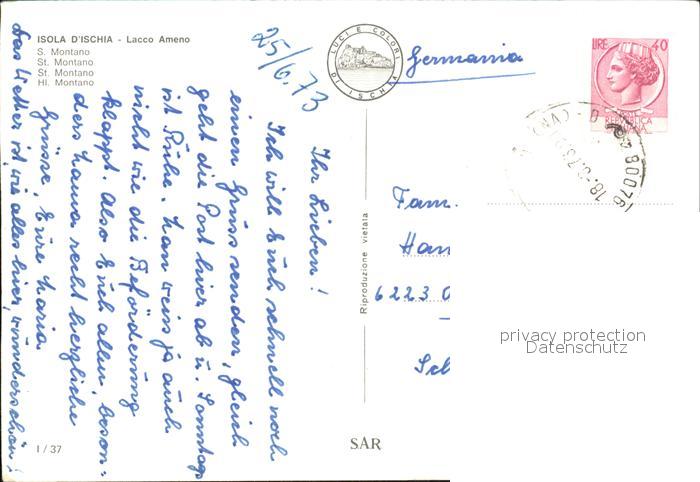 ISOLA D'ISCHIA - Lacco Ameno
S. Montano
St. Montano
St. Montano
Hl. Montano
LUCI E COLORI
DI ISCHIA
25/6.73
Germania
LIRE 40
80076
Ihr Lieben!
Ich will Euch schnell noch
einen Gruss senden, gleich
geht die Post hier ab u. Sonntags
ist Ruhe. Man weis ja auch
nicht wie die Beförderung
klappt. Also Euch allen, beson=
ders Mama recht herzliche
Grüsse, Eure Maria
Das Wetter ist wie alles hier, wunderschön!
Fam.
Han
6223
Sch
Riproduzione vietata
I / 37
SAR
privacy protection
Datenschutz